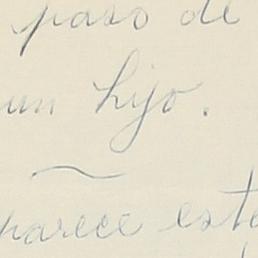 paso de
un hijo.
parece esta